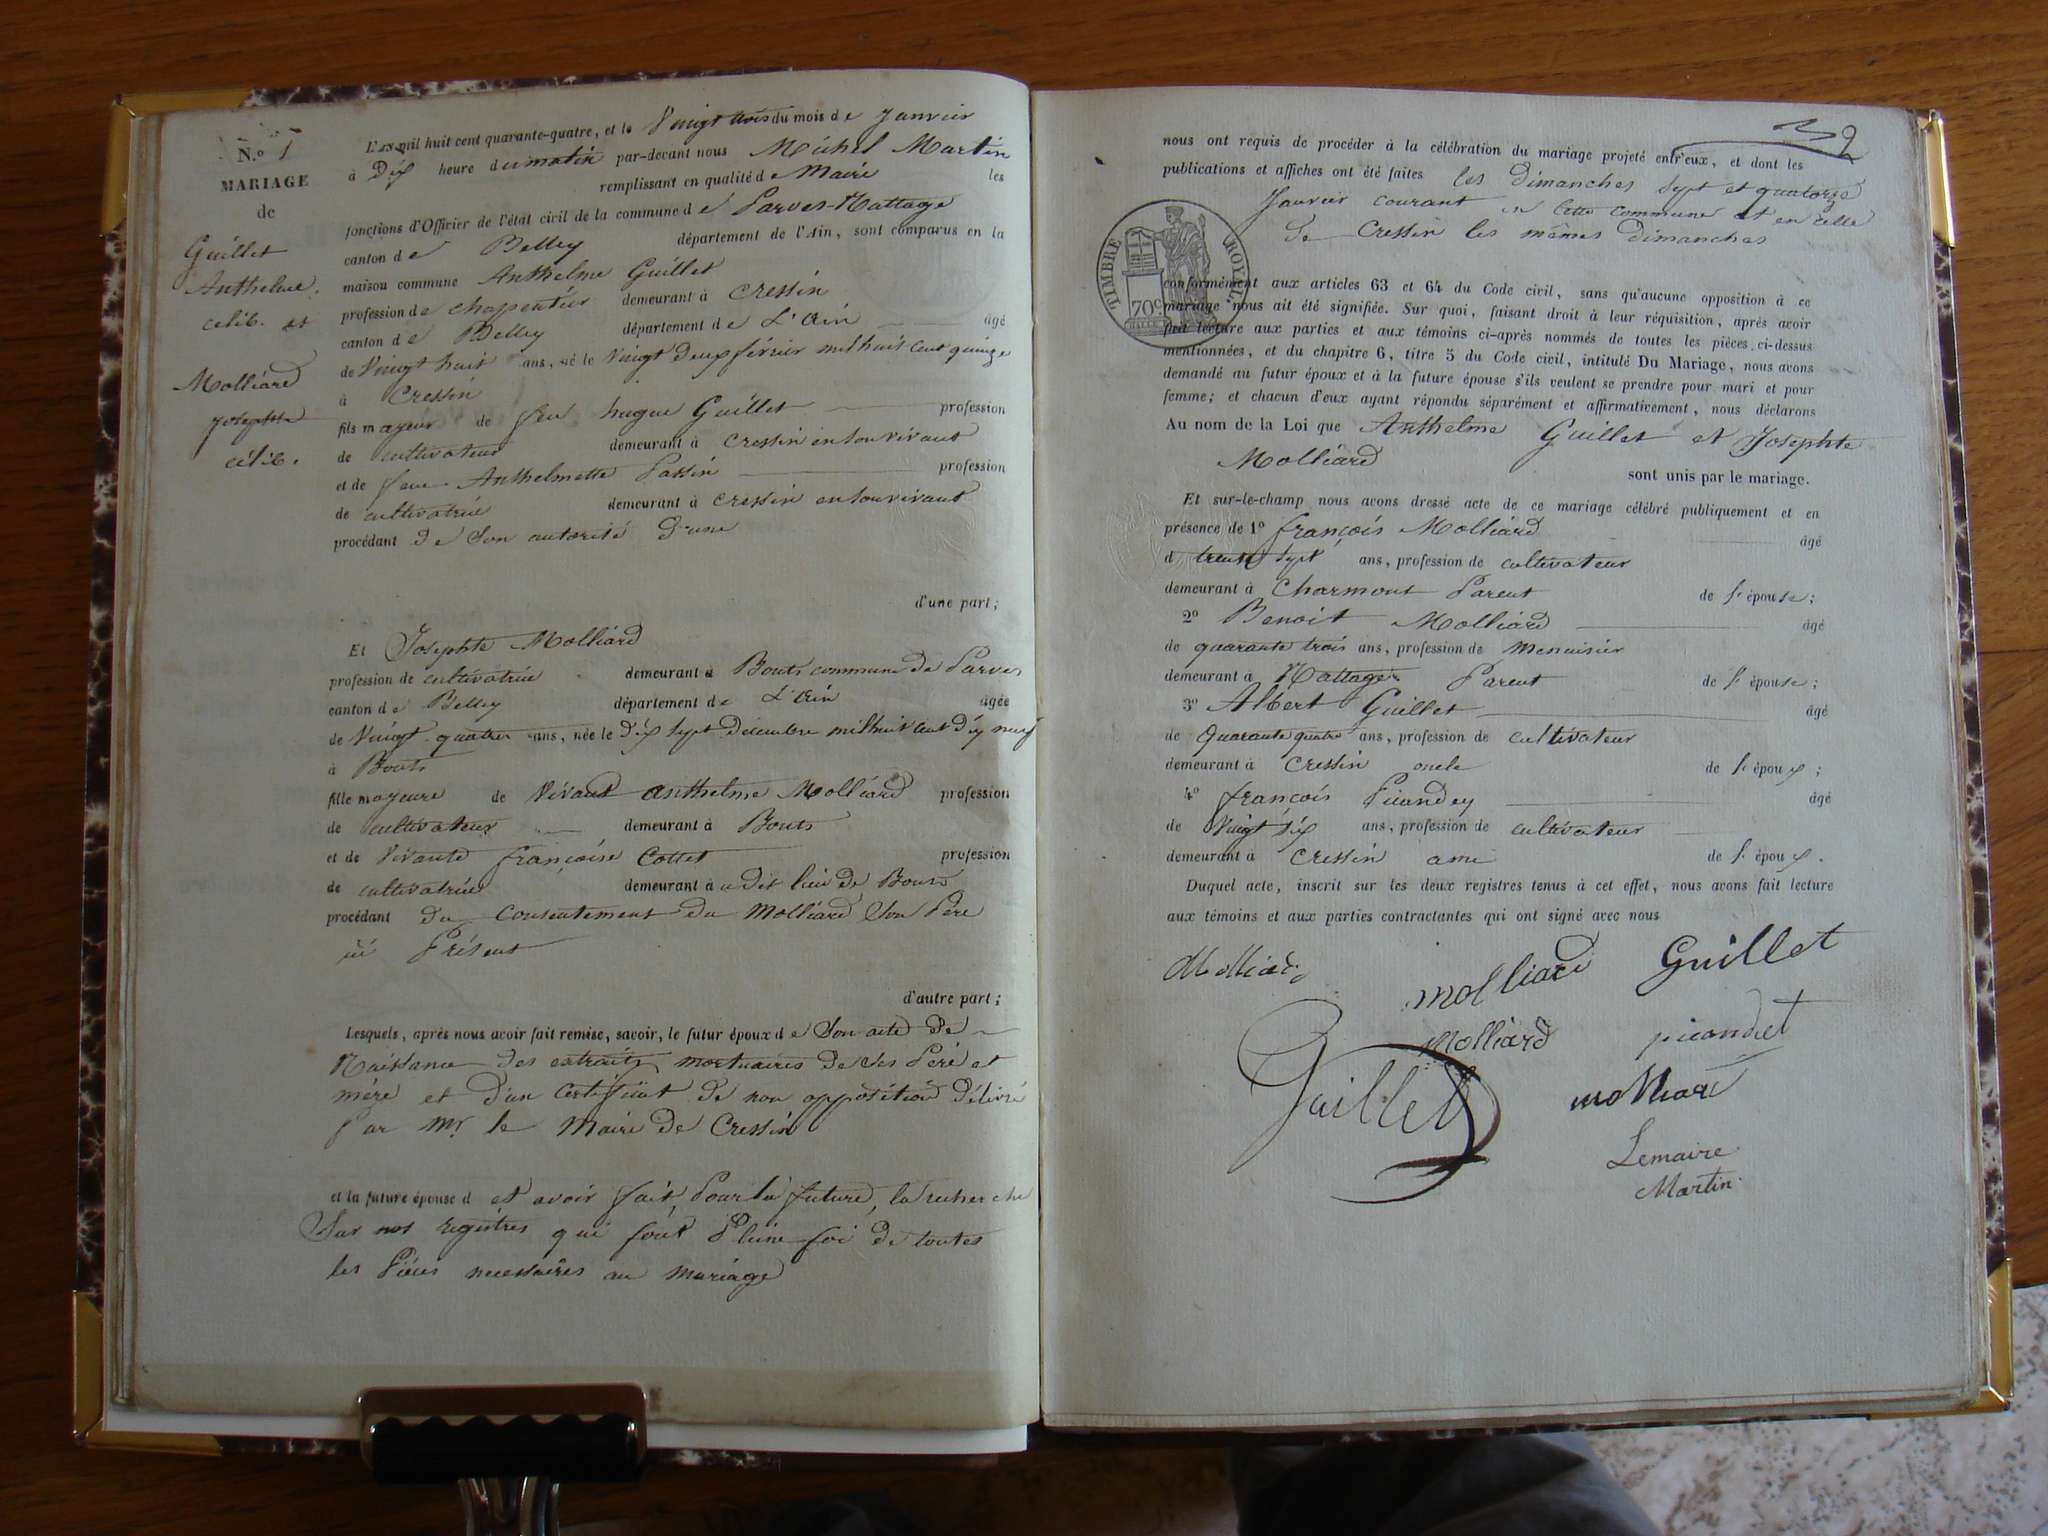 N.o 1
MARIAGE
de
Guillet
Anthelme.
celib. et
Molliard
Josephte
célib.
L'AN mil huit cent quarante-quatre, et le Vingt trois du mois de Janvier
à Dix heure du matin par-devant nous Michel Martin
remplissant en qualité de Maire les
fonctions d'Officier de l'état civil de la commune de Parves-Nattage
canton de Belley département de l'Ain, sont comparus en la
maison commune Anthelme Guillet
profession de charpentier demeurant à Cressin
canton de Belley département de L'Ain âgé
de Vingt huit ans, né le Vingt deux février mil huit cent quinze
à Cressin
fils mayeur de feu hugue Guillet profession
de cultivateur demeurant à Cressin en son vivant
et de feue Anthelmette Passin profession
de cultivatrice demeurant à Cressin en son vivant
procédant de son autorité d'une
d'une part;
Et Josephte Molliard
profession de cultivatrice demeurant à Bouts commune de Parves
canton de Belley département de L'Ain âgée
de Vingt quatre ans, née le Dix sept Décembre mil huit cent dix neuf
à Bouts
fille mayeure de Vivant anthelme Molliard profession
de cultivateur demeurant à Bouts
et de Vivante françoise Cottet profession
de cultivatrice demeurant à u dit lieu de Bouts
procédant du Consentement du Molliard son Père
ici Présent
d'autre part;
Lesquels, après nous avoir fait remise, savoir, le futur époux de Son acte de
Naissance des extraits mortuaires de ses Père et
mère et d'un Certificat de non opposition délivré
Par Mr. le Maire de Cressin
et la future épouse d et avoir fait, Pour la future, la recherche
Sur nos registres qui font Pleine foi de toutes
les Pièces necessaires au mariage
32
nous ont requis de procéder à la célébration du mariage projeté entr'eux, et dont les
publications et affiches ont été faites les dimanches sept et quatorze
Janvier courant en cette commune et en celle
de Cressin les mêmes dimanches
TIMBRE ROYAL
70c.
conformément aux articles 63 et 64 du Code civil, sans qu'aucune opposition à ce
mariage nous ait été signifiée. Sur quoi, faisant droit à leur réquisition, après avoir
fait lecture aux parties et aux témoins ci-après nommés de toutes les pièces ci-dessus
mentionnées, et du chapitre 6, titre 5 du Code civil, intitulé Du Mariage, nous avons
demandé au futur époux et à la future épouse s'ils veulent se prendre pour mari et pour
femme; et chacun d'eux ayant répondu séparément et affirmativement, nous déclarons
Au nom de la Loi que Anthelme Guillet et Josephte
Molliard
sont unis par le mariage.
Et sur-le-champ nous avons dressé acte de ce mariage célébré publiquement et en
présence de 1o françois Molliard âgé
d trente sept ans, profession de cultivateur
demeurant à Charmont Parent de l' épouse;
2o Benoit Molliard âgé
de quarante trois ans, profession de Menuisier
demeurant à Nattages Parent de l' épouse;
3o Albert Guillet âgé
de Quarante quatre ans, profession de cultivateur
demeurant à Cressin oncle de l' époux;
4o françois Picandey âgé
de Vingt six ans, profession de cultivateur
demeurant à Cressin ami de l' époux.
Duquel acte, inscrit sur les deux registres tenus à cet effet, nous avons fait lecture
aux témoins et aux parties contractantes qui ont signé avec nous
Molliard molliard Guillet
Molliard picandet
Guillet molliard
Lemaire
Martin